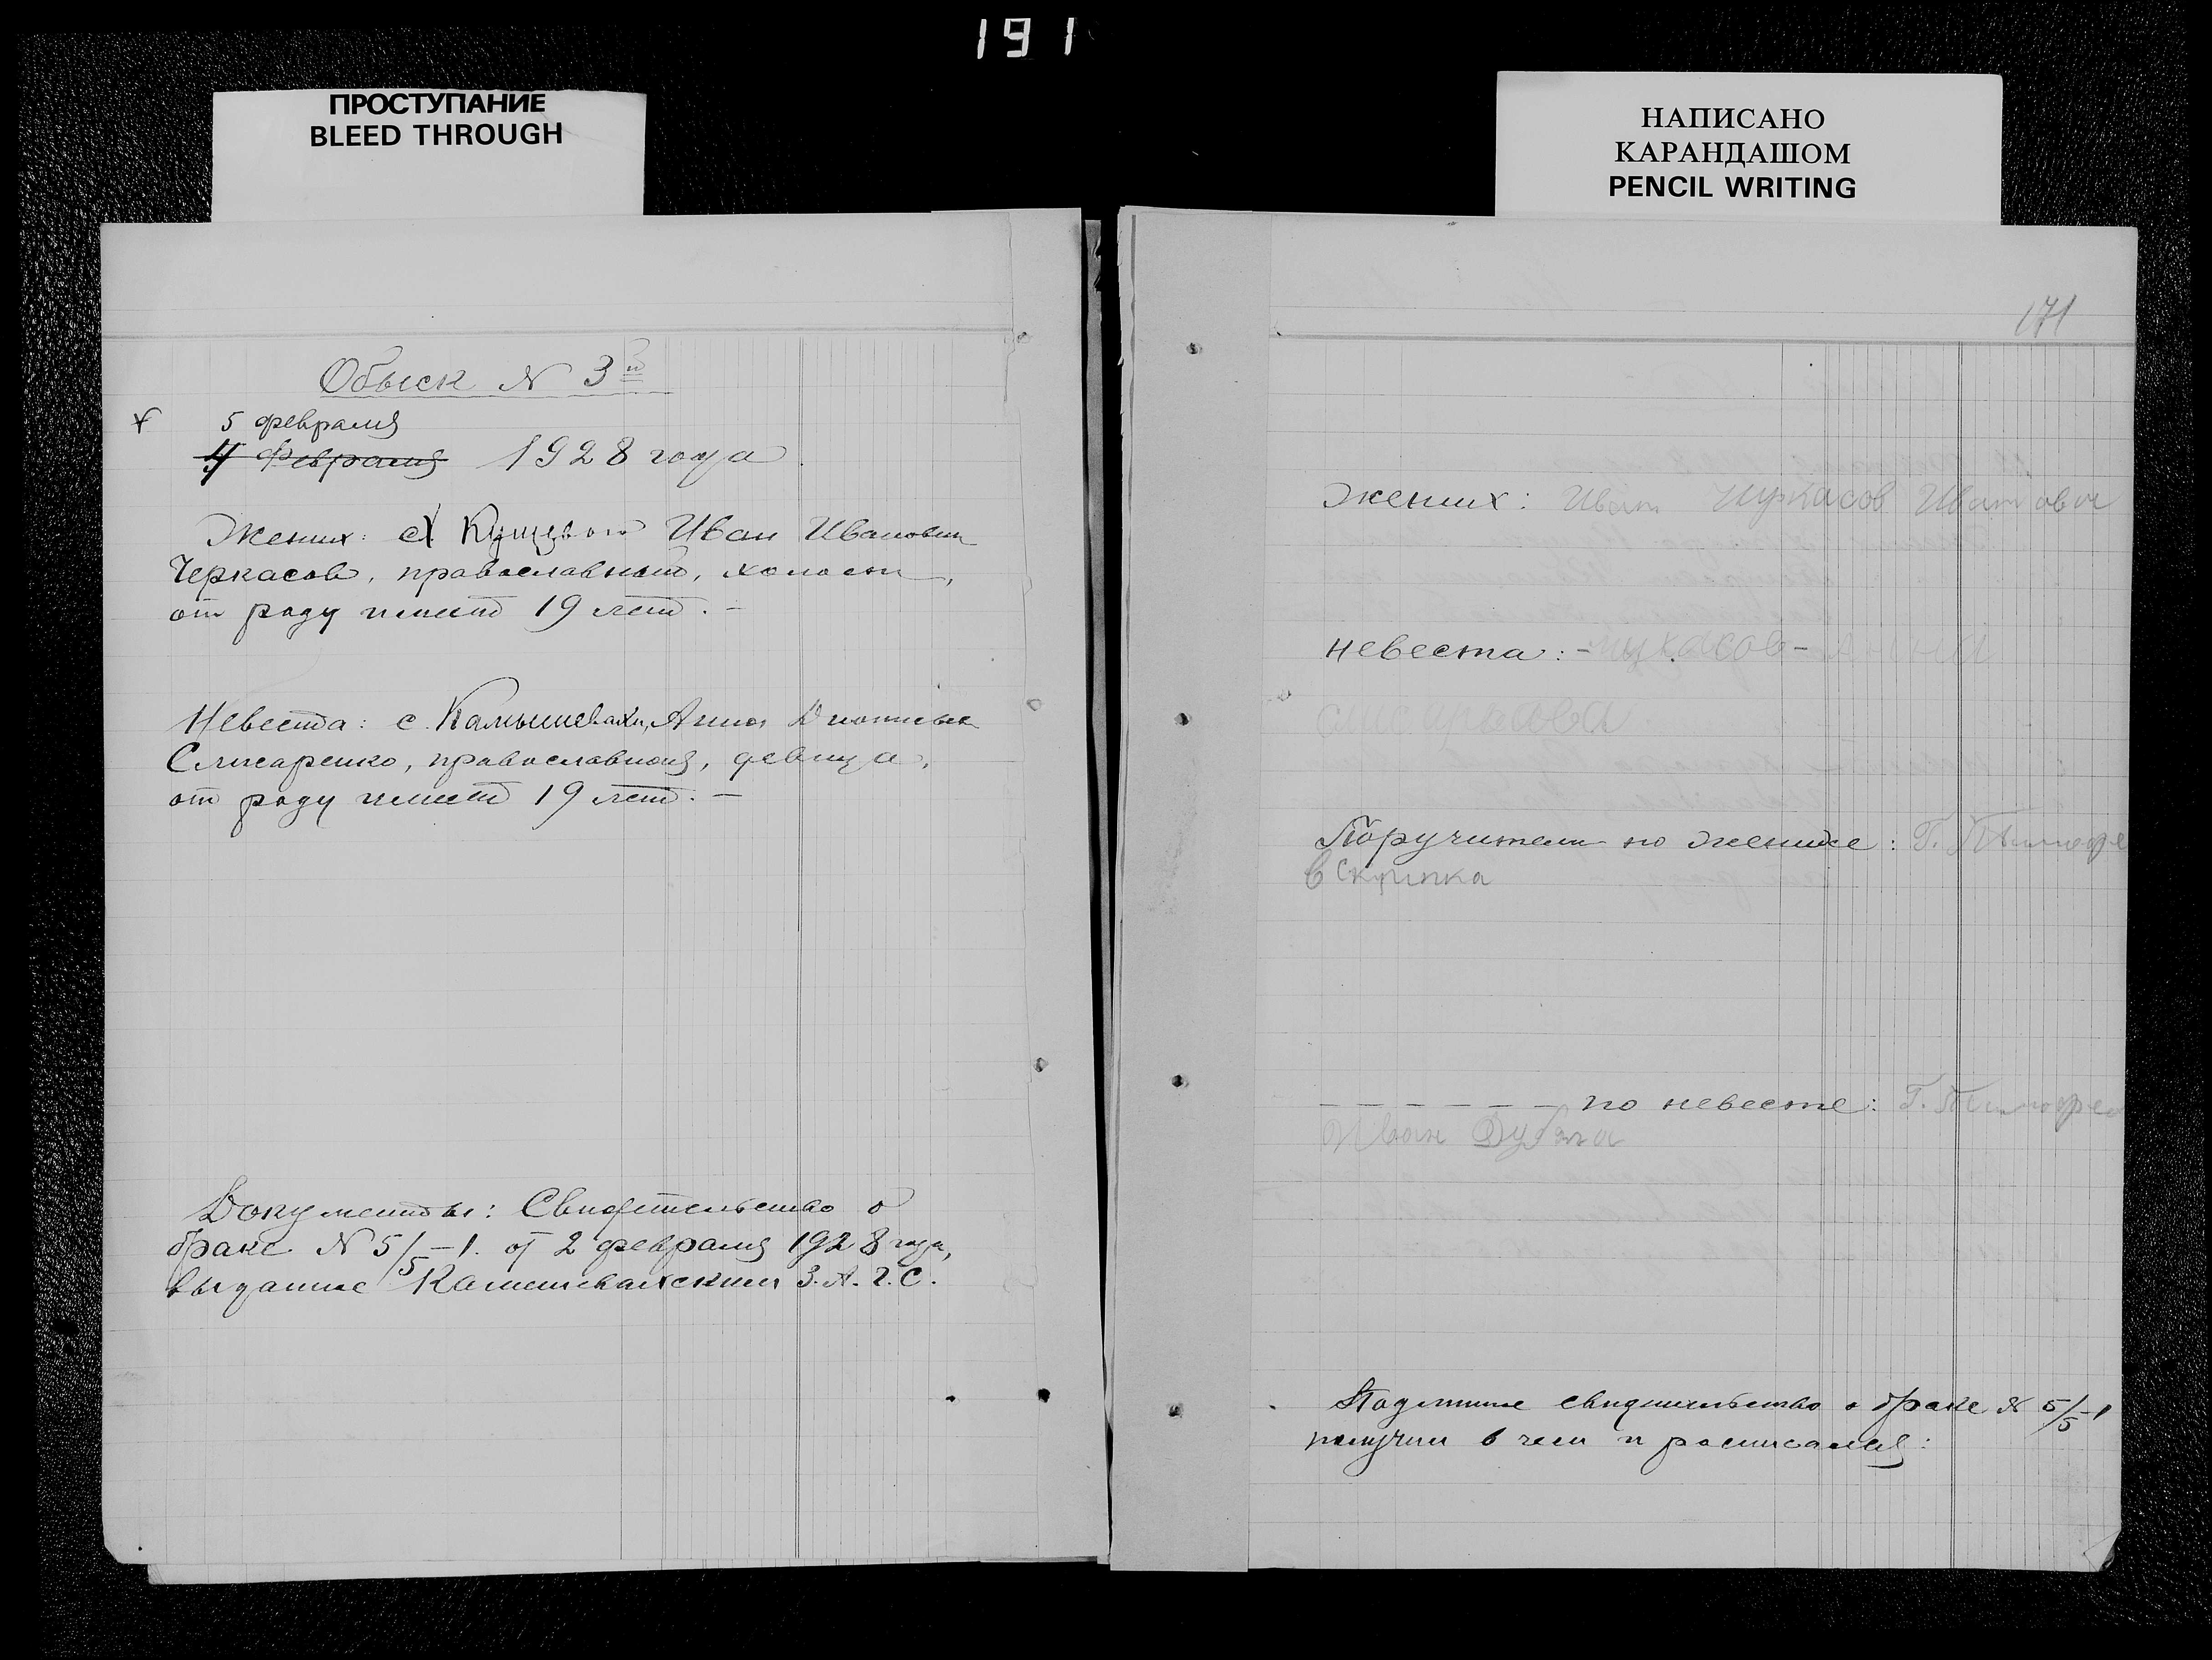 191
ПРОСТУПАНИЕ
BLEED THROUGH
НАПИСАНО
КАРАНДАШОМ
PENCIL WRITING
Обыск № 3й
5 февраля
4 Февраля 1928 года
Жених: Иван Иванович
Черкасов, православный, холост,
от роду имеет 19 лет. –
Невеста: с. Камышевахи, Анна
Слисаренко, православная, девица,
от роду имеет 19 лет. –
Документы: Свидетельство о
браке № 5/5–1. от 2 февраля 1928 года,
выданное Камышевахским З.А.Г.С.
171
Жених: Иван Чуркасов Иванович
невеста:
Поручители по женихе: Г.
Скрипка
– – – – – – по невесте: Г.
Иван
Подлинное свидетельство о браке № 5/5–1
получили в чем и расписались: